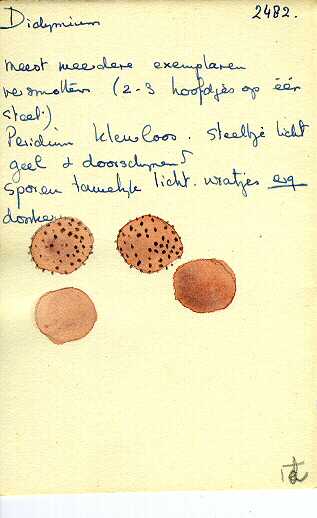 Didymium 2482.
meest meerdere exemplaren
versmolten (2-3 hoofdjes op één
steel.)
Peridium kleurloos. steeltje licht
geel & doorschijnend
Sporen tamelijk licht. wratjes erg
donker